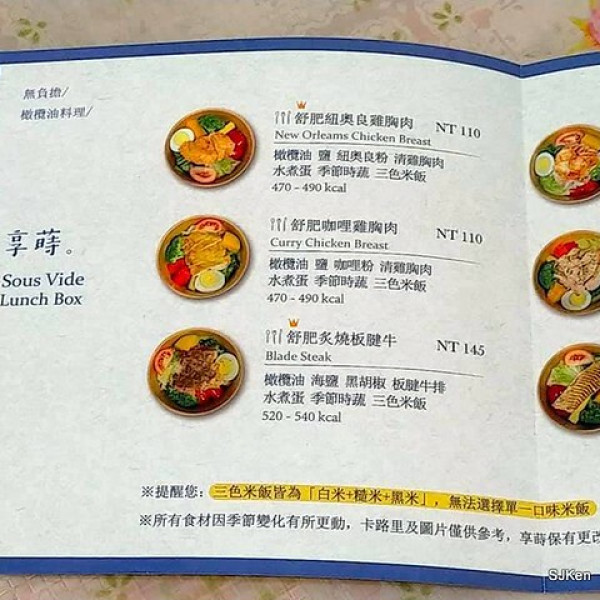 無負擔/
橄欖油料理/
享蒔。
Sous Vide
Lunch Box
舒肥紐奧良雞胸肉 NT 110
New Orleans Chicken Breast
橄欖油 鹽 紐奧良粉 清雞胸肉
水煮蛋 季節時蔬 三色米飯
470 - 490 kcal
舒肥咖哩雞胸肉 NT 110
Curry Chicken Breast
橄欖油 鹽 咖哩粉 清雞胸肉
水煮蛋 季節時蔬 三色米飯
470 - 490 kcal
舒肥炙燒板腱牛 NT 145
Blade Steak
橄欖油 海鹽 黑胡椒 板腱牛排
水煮蛋 季節時蔬 三色米飯
520 - 540 kcal
※提醒您：三色米飯皆為「白米+糙米+黑米」，無法選擇單一口味米飯
※所有食材因季節變化有所更動，卡路里及圖片僅供參考，享蒔保有更改
SJKen